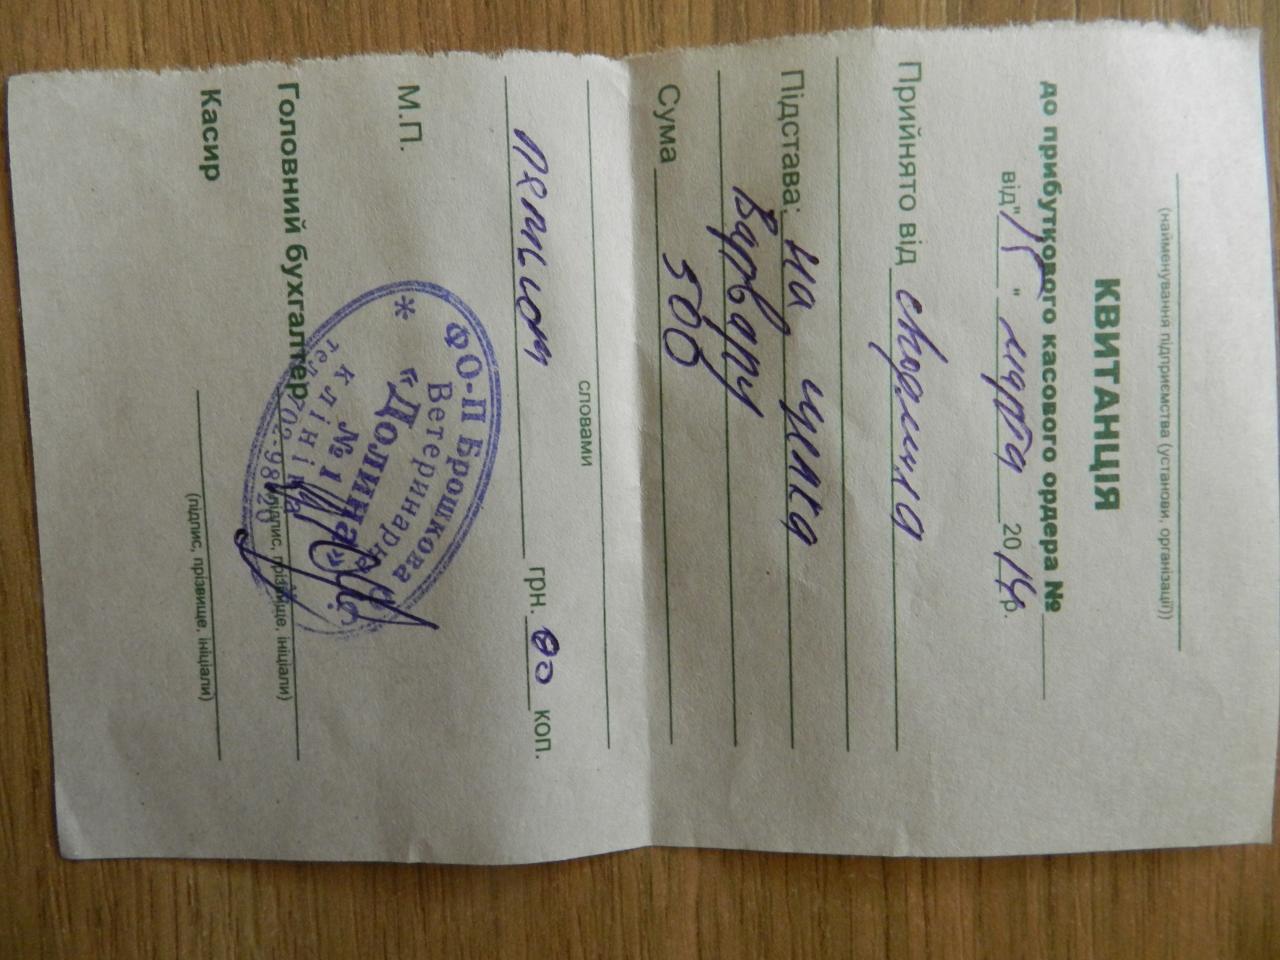 (найменування підприємства (установи, організації))
КВИТАНЦІЯ
до прибуткового касового ордера №
від "15" марта 2014р.
Прийнято від
Підстава: на щенка
Варвару
Сума 500
словами
пятьсот грн. 00 коп.
М.П.
Головний бухгалтер
(підпис, прізвище, ініціали)
Касир
(підпис, прізвище, ініціали)
ФО-П Брошкова
Ветеринарна
«Долина»
№1
клініка
тел. 702-98-20